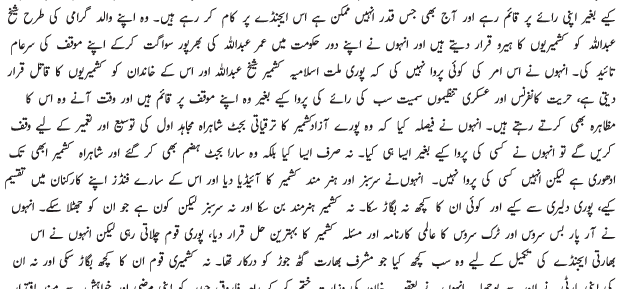 کیے بغیر اپنی رائے پر قائم رہے اور آج بھی جس قدر انہیں ممکن ہے اس ایجنڈے پر کام کر رہے ہیں۔ وہ اپنے والد گرامی کی طرح شیخ
عبداللہ کو کشمیریوں کا ہیرو قرار دیتے ہیں اور انہوں نے اپنے دور حکومت میں عمر عبداللہ کی بھرپور سواگت کرکے اپنے موقف کی سرعام
تائید کی۔ انہوں نے اس امر کی کوئی پروا نہیں کی کہ پوری ملت اسلامیہ کشمیر شیخ عبداللہ اور اس کے خاندان کو کشمیریوں کا قاتل قرار
دیتی ہے، حریت کانفرنس اور عسکری تنظیموں سمیت سب کی رائے کی پروا کیے بغیر وہ اپنے موقف پر قائم ہیں اور وقت آنے وہ اس کا
مظاہرہ بھی کرتے رہتے ہیں۔ انہوں نے فیصلہ کیا کہ وہ پورے آزادکشمیر کا ترقیاتی بجٹ شاہراہ مجاہد اول کی توسیع اور تعمیر کے لیے وقف
کریں گے تو انہوں نے کسی کی پروا کیے بغیر ایسا ہی کیا۔ نہ صرف ایسا کیا بلکہ وہ سارا بجٹ ہضم بھی کر گئے اور شاہراہ کشمیر ابھی تک
ادھوری ہے لیکن انہیں کسی کی پروا نہیں۔ انہوں نے سرسبز اور ہنر مند کشمیر کا آئیڈیا دیا اور اس کے سارے فنڈز اپنے کارکنان میں تقسیم
کیے، پوری دلیری سے کیے اور کوئی ان کا کچھ نہ بگاڑ سکا۔ نہ کشمیر ہنرمند بن سکا اور نہ سرسبز لیکن کون ہے جو ان کو جھٹلا سکے۔ انہوں
نے آر پار بس سروس اور ٹرک سروس کا عالمی کارنامہ اور مسئلہ کشمیر کا بہترین حل قرار دیا، پوری قوم چلاتی رہی لیکن انہوں نے اس
بھارتی ایجنڈے کی تکمیل کے لیے وہ سب کچھ کیا جو مشرف بھارت گٹھ جوڑ کو درکار تھا۔ نہ کشمیری قوم ان کا کچھ بگاڑ سکی اور نہ ان